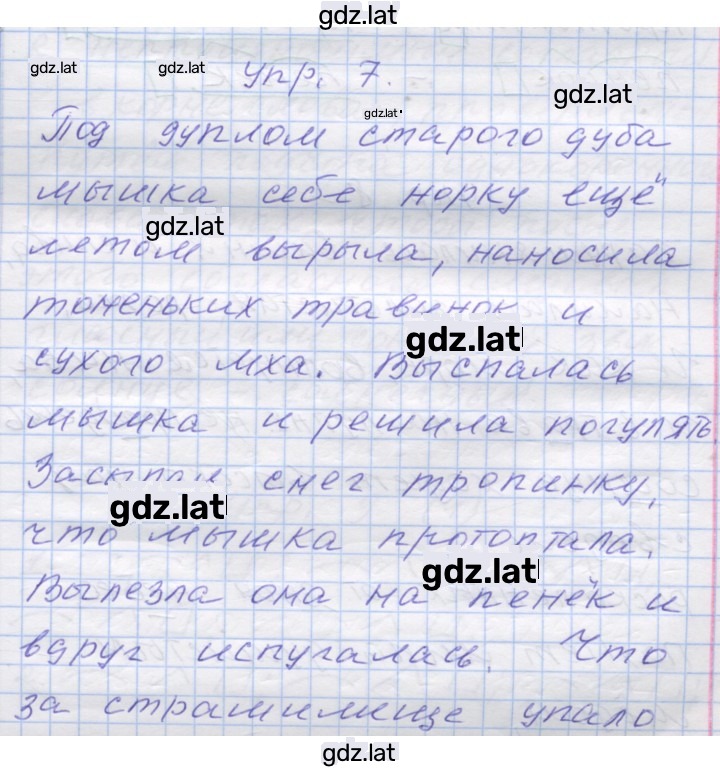 gdz.lat
gdz.lat gdz.lat упр. 7. gdz.lat
gdz.lat
Под дуплом старого дуба
мышка себе норку ещё
gdz.lat
летом вырыла, наносила
тоненьких травинок и
gdz.lat
сухого мха. Выспалась
мышка и решила погулять.
Засыпал снег тропинку,
gdz.lat
что мышка протоптала.
gdz.lat
Вылезла она на пенёк и
вдруг испугалась. Что
за страшилище упало
gdz.lat